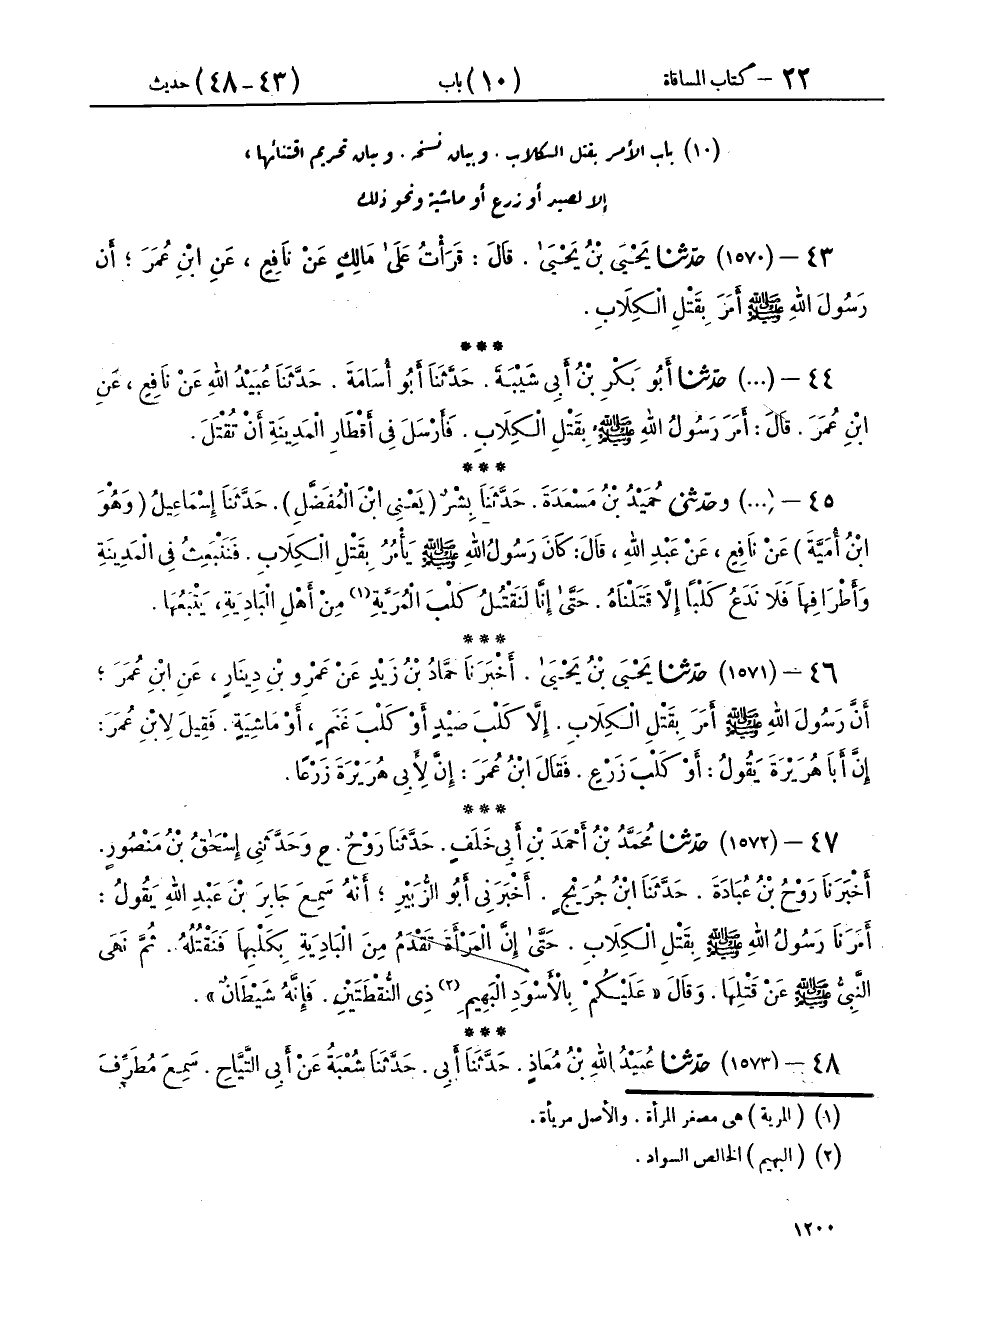 ٢٢ – كتاب المساقاة (١٠) باب (٤٣-٤٨) حديث
(١٠) باب الأمر بقتل الكلاب . وبيان نسخه . وبيان تحريم اقتنائها ،
إلا لصيد أو زرع أو ماشية ونحو ذلك
٤٣ – (١٥٧٠) حدّثنا يَحْيَىٰ بْنُ يَحْيَىٰ . قَالَ : قَرَأْتُ عَلَىٰ مَالِكٍ عَنْ نَافِعٍ ، عَنِ ابْنِ عُمَرَ ؛ أَن
رَسُولَ اللهِ ﷺ أَمَرَ بِقَتْلِ الْكِلَابِ .
***
٤٤ – (...) حدّثنا أَبُو بَكْرِ بْنُ أَبِي شَيْبَةَ . حَدَّثَنَا أَبُو أُسَامَةَ . حَدَّثَنَا عُبَيْدُ اللهِ عَنْ نَافِعٍ ، عَنِ
ابْنِ عُمَرَ . قَالَ : أَمَرَ رَسُولُ اللهِ ﷺ بِقَتْلِ الْكِلَابِ . فَأَرْسَلَ فِي أَقْطَارِ الْمَدِينَةِ أَنْ تُقْتَلَ .
***
٤٥ – (...) وحدّثنى حُمَيْدُ بْنُ مَسْعَدَةَ . حَدَّثَنَا بِشْرٌ ( يَعْنِي ابْنَ الْمُفَضَّلِ ) . حَدَّثَنَا إِسْمَاعِيلُ ( وَهُوَ
ابْنُ أُمَيَّةَ ) عَنْ نَافِعٍ ، عَنْ عَبْدِ اللهِ ، قَالَ: كَانَ رَسُولُ اللهِ ﷺ يَأْمُرُ بِقَتْلِ الْكِلَابِ . فَنَنْبَعِثُ فِي الْمَدِينَةِ
وَأَطْرَافِهَا فَلَا نَدَعُ كَلْبًا إِلَّا قَتَلْنَاهُ . حَتَّىٰ إِنَّا لَنَقْتُلُ كَلْبَ الْمُرَيَّةِ (١) مِنْ أَهْلِ الْبَادِيَةِ ، يَتْبَعُهَا .
***
٤٦ – (١٥٧١) حدّثنا يَحْيَىٰ بْنُ يَحْيَىٰ . أَخْبَرَنَا حَمَّادُ بْنُ زَيْدٍ عَنْ عَمْرِو بْنِ دِينَارٍ ، عَنِ ابْنِ عُمَرَ ؛
أَنَّ رَسُولَ اللهِ ﷺ أَمَرَ بِقَتْلِ الْكِلَابِ . إِلَّا كَلْبَ صَيْدٍ أَوْ كَلْبَ غَنَمٍ ، أَوْ مَاشِيَةٍ . فَقِيلَ لِابْنِ عُمَرَ:
إِنَّ أَبَا هُرَيْرَةَ يَقُولُ : أَوْ كَلْبَ زَرْعٍ . فَقَالَ ابْنُ عُمَرَ : إِنَّ لِأَبِي هُرَيْرَةَ زَرْعًا .
***
٤٧ – (١٥٧٢) حدّثنا مُحَمَّدُ بْنُ أَحْمَدَ بْنِ أَبِي خَلَفٍ . حَدَّثَنَا رَوْحٌ . ح وَحَدَّثَنِي إِسْحَٰقُ بْنُ مَنْصُورٍ .
أَخْبَرَنَا رَوْحُ بْنُ عُبَادَةَ . حَدَّثَنَا ابْنُ جُرَيْجٍ . أَخْبَرَنِي أَبُو الزُّبَيْرِ ؛ أَنَّهُ سَمِعَ جَابِرَ بْنَ عَبْدِ اللهِ يَقُولُ :
أَمَرَنَا رَسُولُ اللهِ ﷺ بِقَتْلِ الْكِلَابِ . حَتَّىٰ إِنَّ الْمَرْأَةَ تَقْدَمُ مِنَ الْبَادِيَةِ بِكَلْبِهَا فَنَقْتُلُهُ . ثُمَّ نَهَى
النَّبِيُّ ﷺ عَنْ قَتْلِهَا . وَقَالَ « عَلَيْكُمْ بِالْأَسْوَدِ الْبَهِيمِ (٢) ذِي النُّقْطَتَيْنِ . فَإِنَّهُ شَيْطَانٌ » .
***
٤٨ – (١٥٧٣) حدّثنا عُبَيْدُ اللهِ بْنُ مُعَاذٍ . حَدَّثَنَا أَبِي . حَدَّثَنَا شُعْبَةُ عَنْ أَبِي التَّيَّاحِ . سَمِعَ مُطَرِّفَ
(١) ( المرية ) هى مصغر المرأة . والأصل مريأة .
(٢) ( البهيم ) الخالص السواد .
١٢٠٠